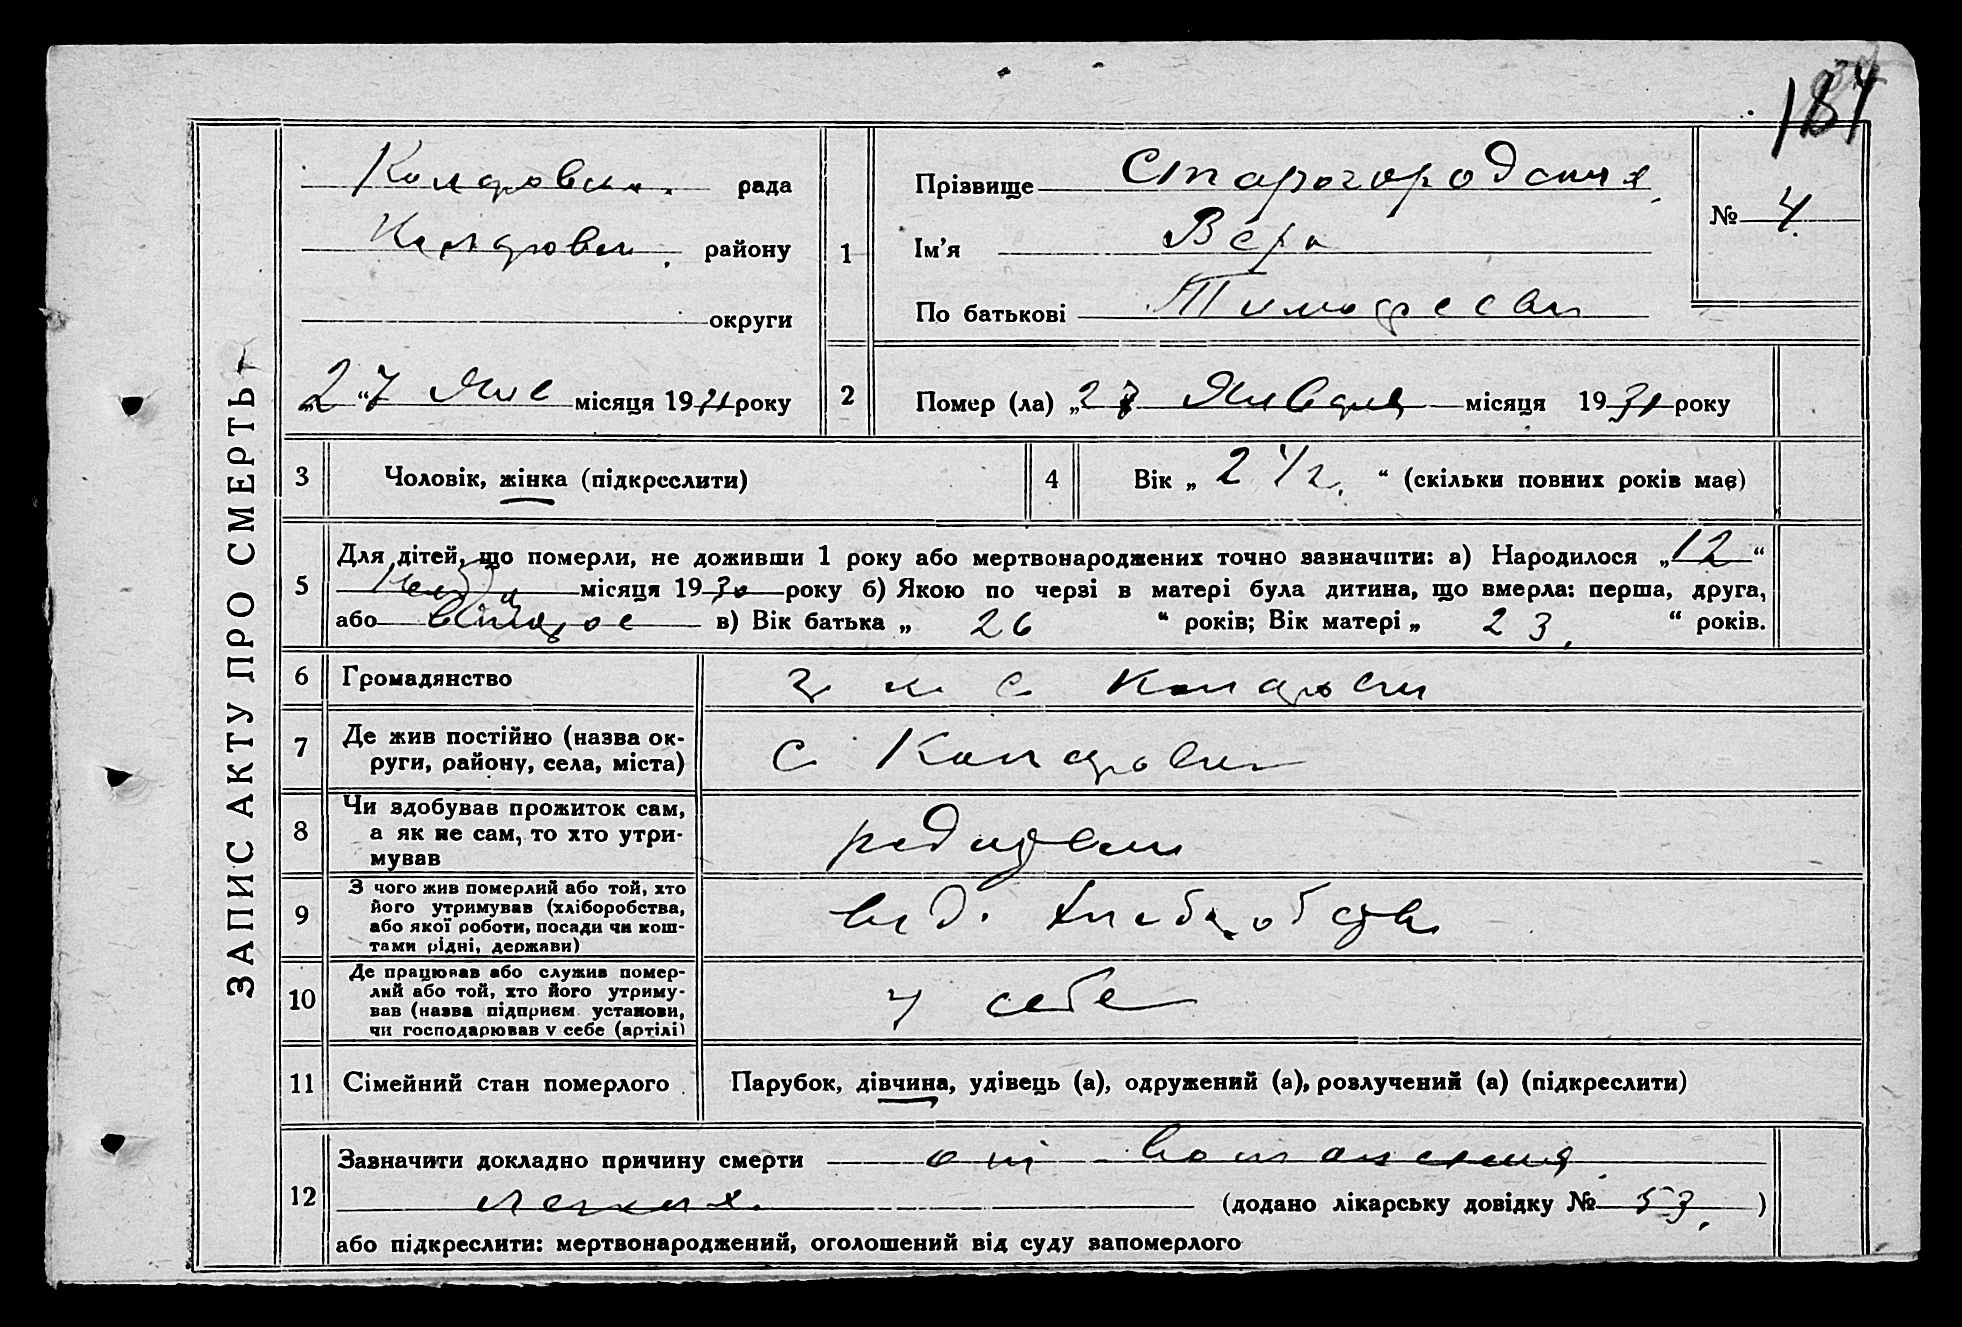 184
ЗАПИС АКТУ ПРО СМЕРТЬ
рада
району
округи
„27“ Янв місяця 1931 року
1
Прізвище
Ім’я Вера
По батькові Тимофеевн
№ 4
2
Помер (ла) „27 Января місяця 1931 року
3 Чоловік, жінка (підкреслити)
4 Вік „ 2 ½ г. “ (скільки повних років має)
5
Для дітей, що померли, не доживши 1 року або мертвонароджених точно зазначити: а) Народилося „12“
місяця 1930 року б) Якою по черзі в матері була дитина, що вмерла: перша, друга,
або второе в) Вік батька „ 26 “ років; Вік матері „ 23, “ років.
6 Громадянство
7 Де жив постійно (назва ок-
руги, району, села, міста)
с.
8 Чи здобував прожиток сам,
а як не сам, то хто утри-
мував
родители
9 З чого жив померлий або той, хто
його утримував (хліборобства,
або якої роботи, посади чи кош-
тами рідні, держави)
від. хлеборобства
10 Де працював або служив помер-
лий або той, хто його утриму-
вав (назва підприєм. установи,
чи господарював у себе (артілі)
у себе
11 Сімейний стан померлого
Парубок, дівчина, удівець (а), одружений (а), розлучений (а) (підкреслити)
12
Зазначити докладно причину смерти от воспаления
легких. (додано лікарську довідку № 53, )
або підкреслити: мертвонароджений, оголошений від суду запомерлого